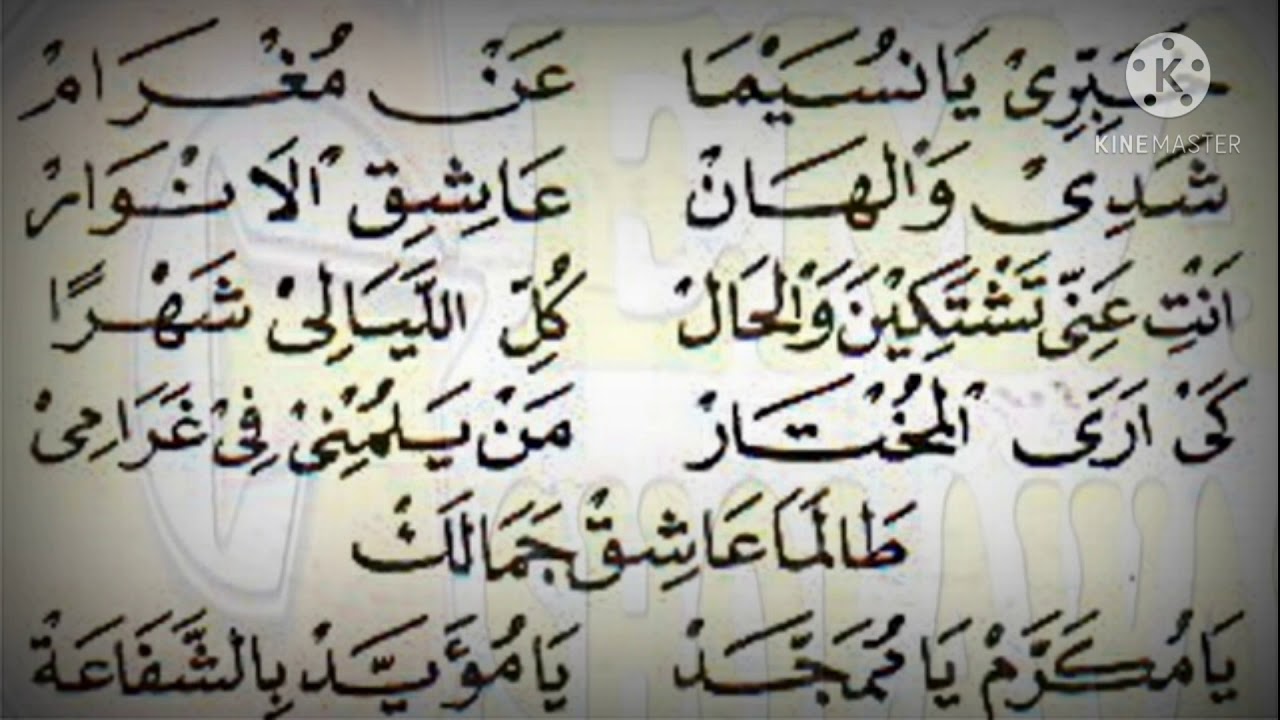 خَبِّرِىْ يَانُسَيْمَا عَنْ مُغْرَامْ
شَدِىْ وَالْهَانْ عَاشِقِ الْاَنْوَارْ
اَنْتِ عَنِّى تَشْتَكِيْنَ وَالْحَالْ كُلِّ اللَّيَالِىْ شَهْرًا
كَىْ اَرَى الْمُخْتَارْ مَنْ يَلُمْنِىْ فِىْ غَرَامِىْ
طَالَمَا عَاشِقْ جَمَالَكْ
يَامُكَرَّمْ يَامُمَجَّدْ يَامُؤَيَّدْ بِالشَّفَاعَةْ
KINEMASTER